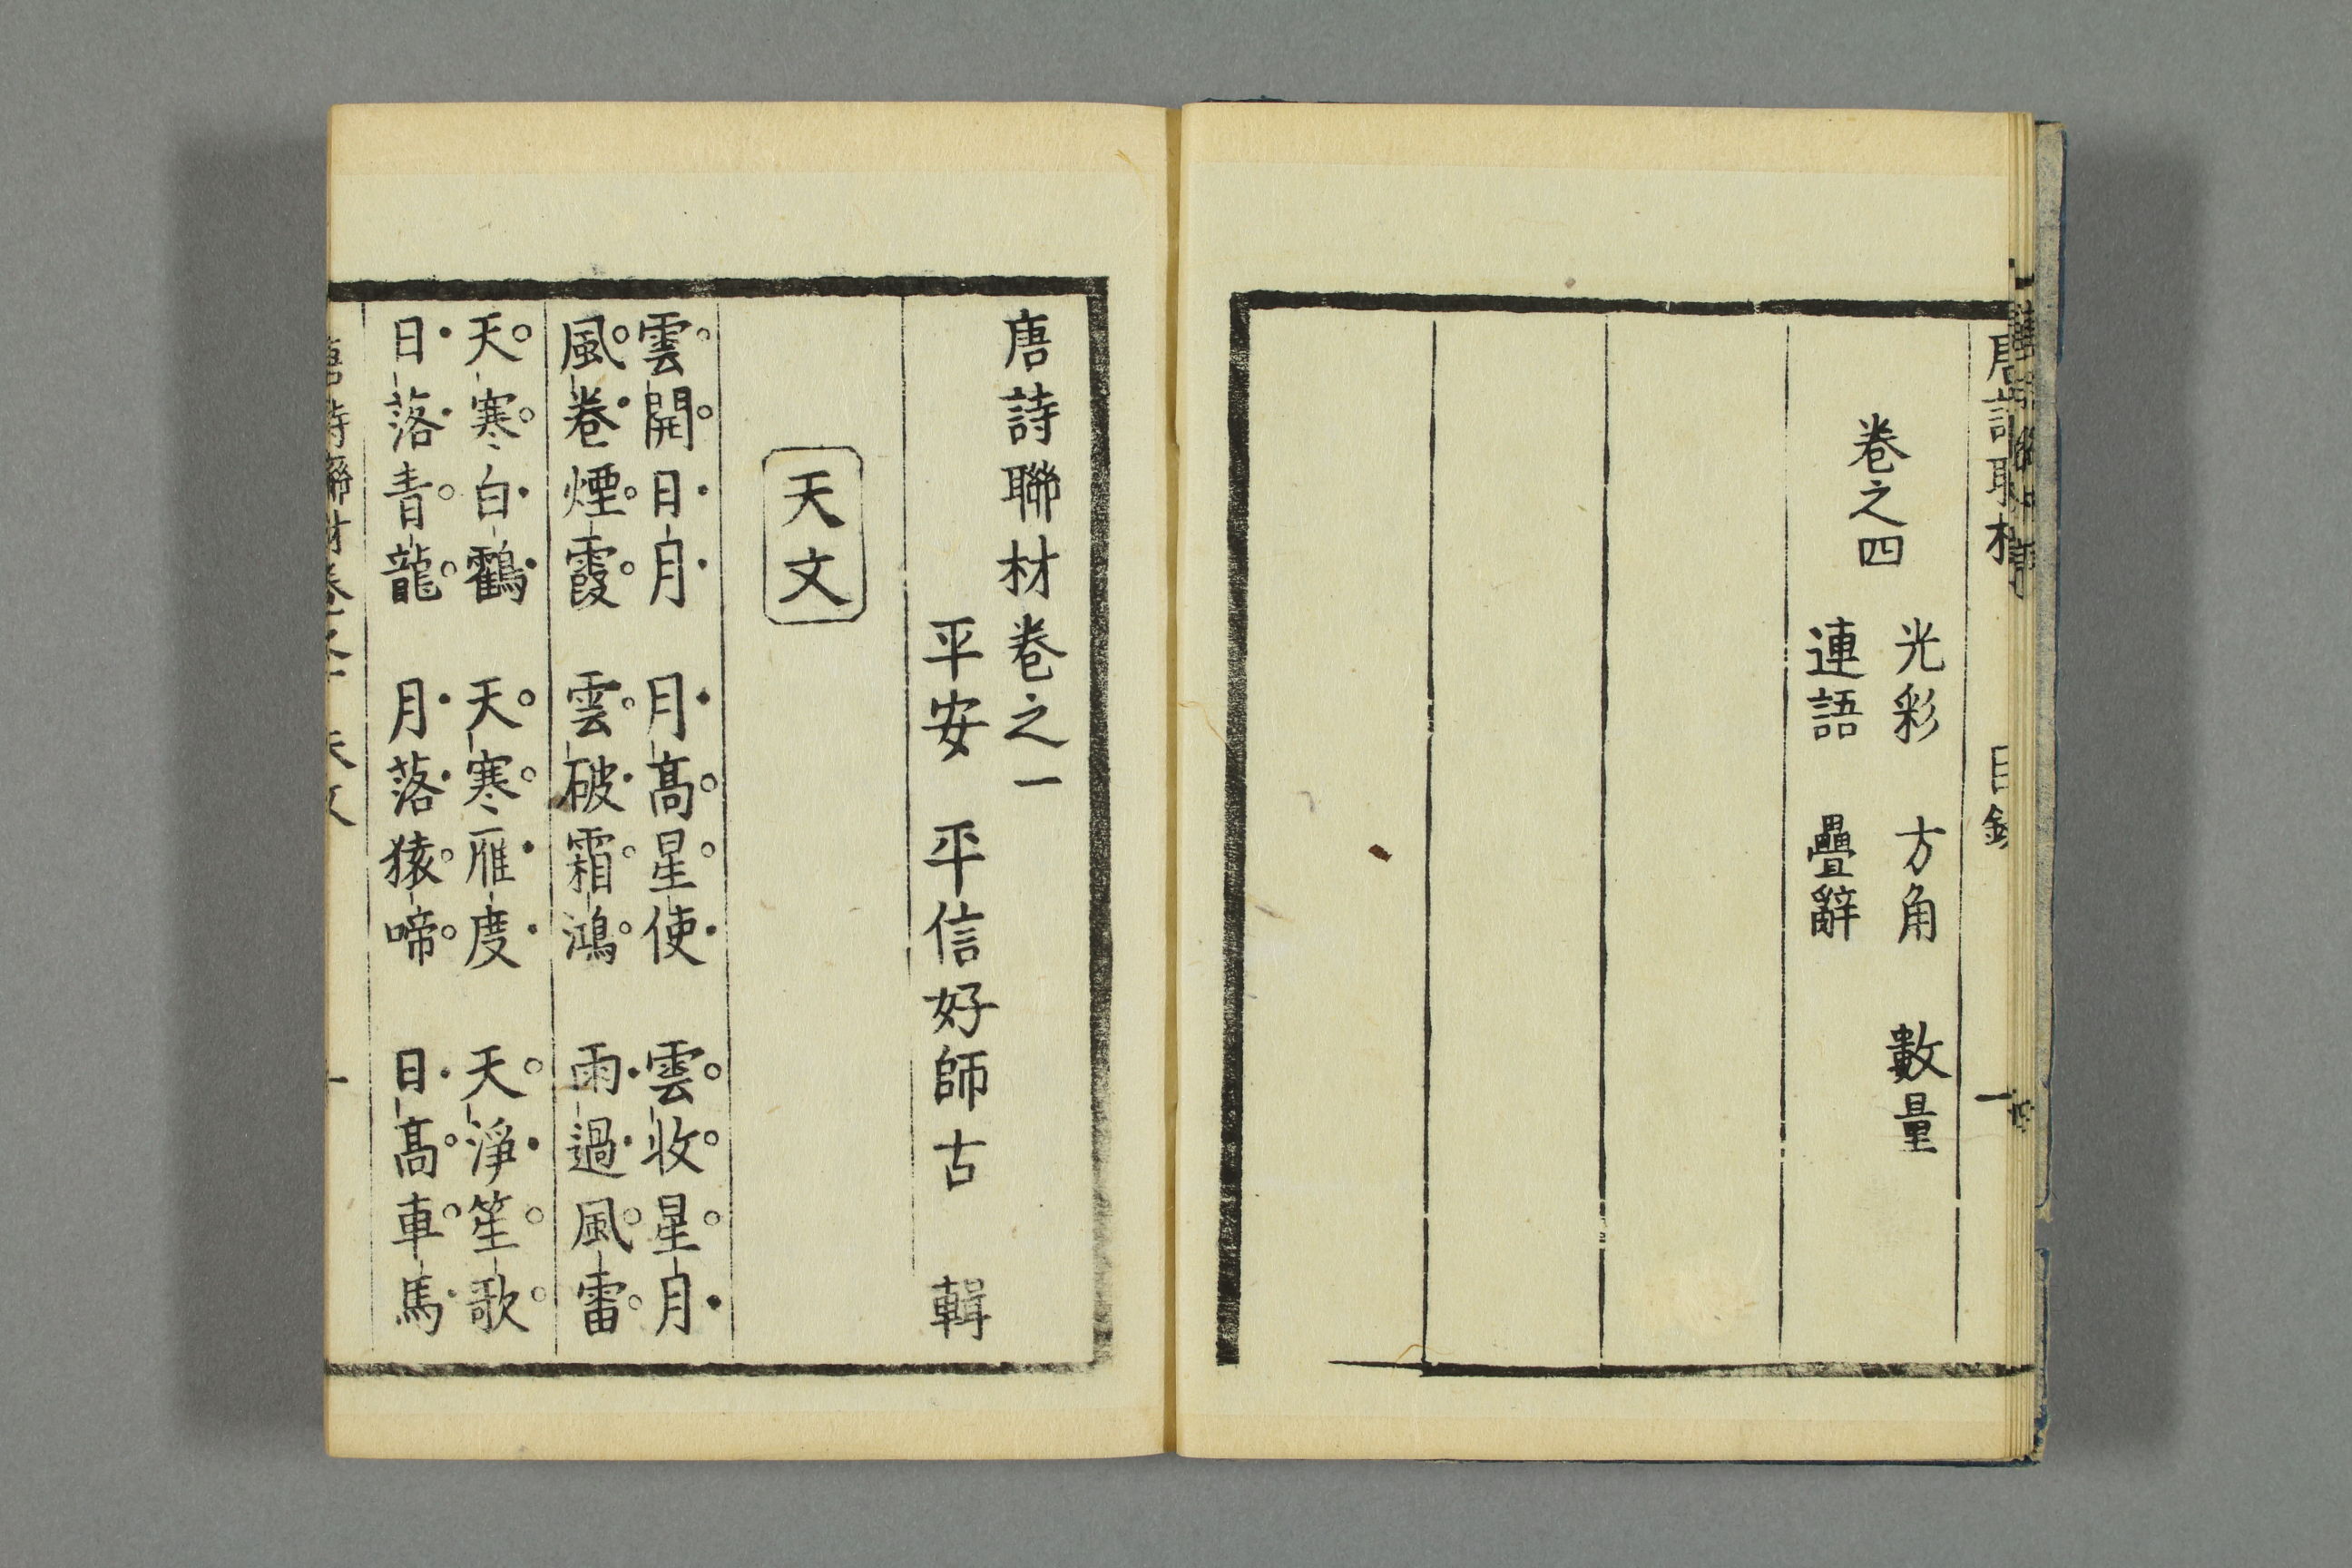 唐詩聯材 目録 一
卷之四
光彩 方角 數量
連語 疊辭
唐詩聯材卷之一
平安 平信好師古 輯
天文
雲開日月 月高星使 雲收星月
風卷煙霞 雲破霜鴻 雨過風雷
天寒白鶴 天寒雁度 天淨笙歌
日落青龍 月落猿啼 日高車馬
唐詩聯材卷之一 天文 一